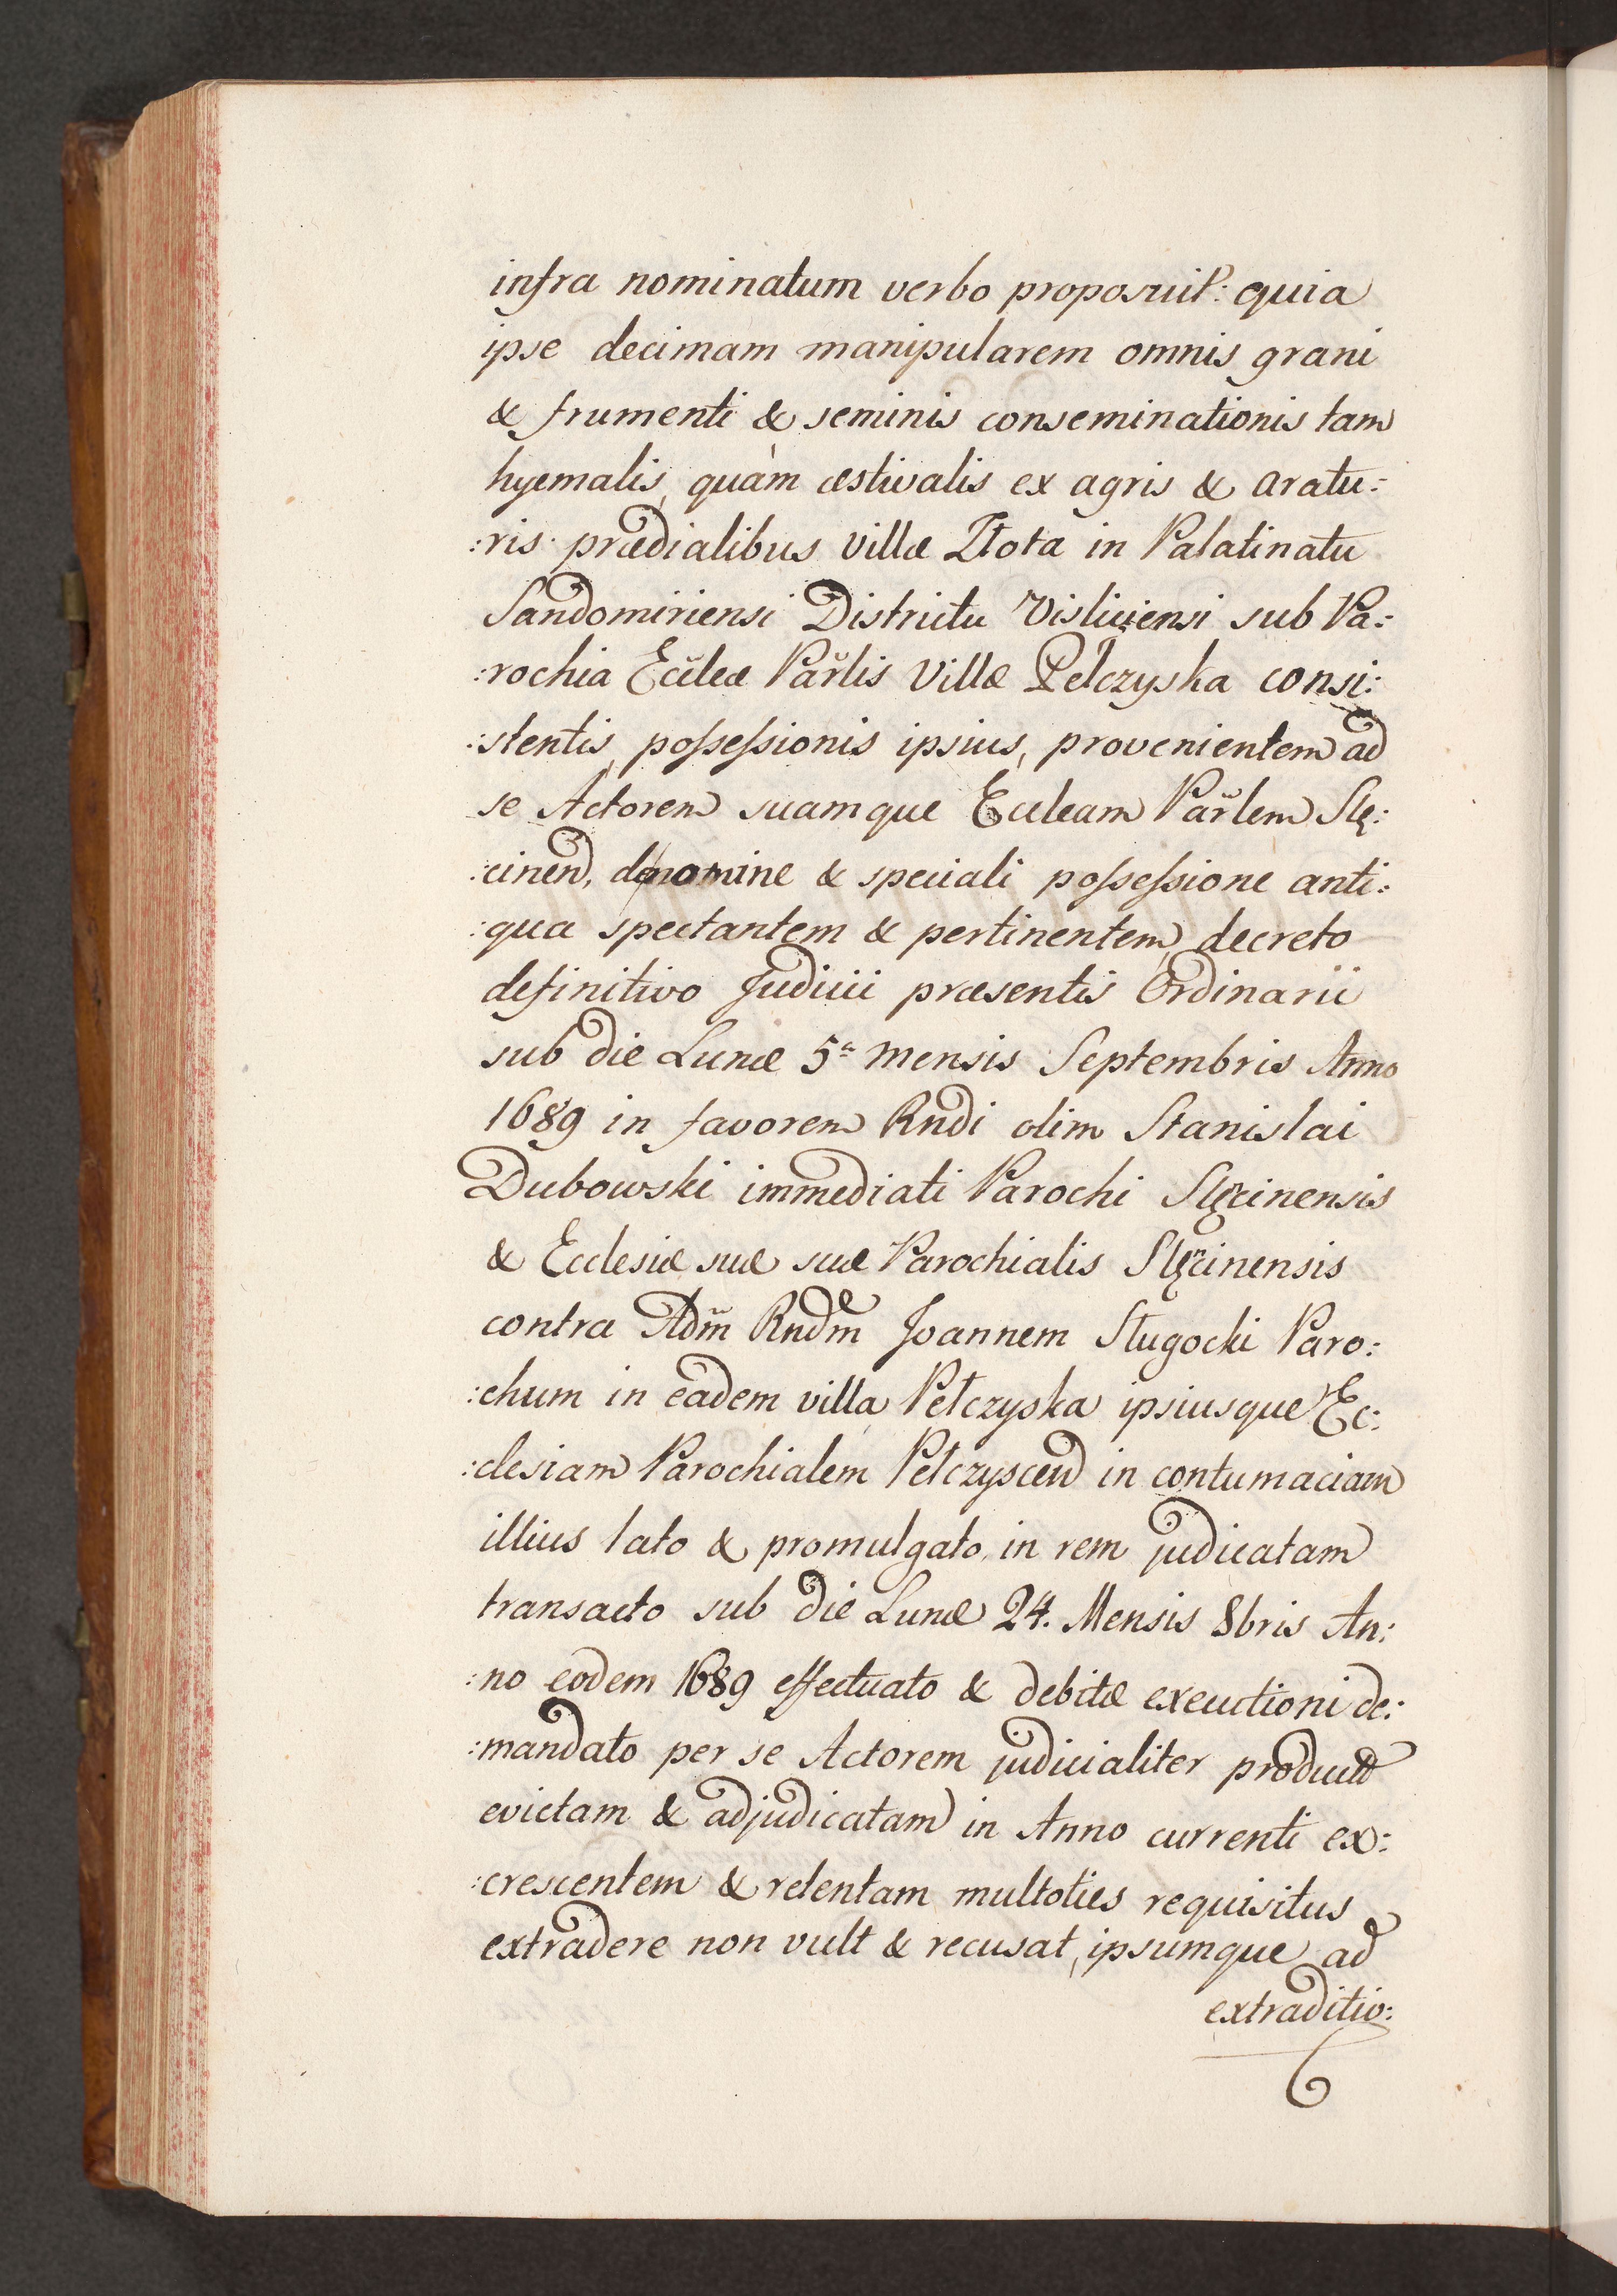 infra nominatum verbo proposuit: quia
ipse decimam manipularem omnis grani
& frumenti & seminis conseminationis tam
hyemalis, quàm æstivalis ex agris & aratu:
:ris prædialibus villæ Złota in Palatinatu
Sandomiriensi Districtu Visliciensi sub Pa:
:rochia Eccleæ Parlis Villæ Pelczyska consi:
:stentis, possessionis ipsius, provenientem ad
se Actorem suamque Eccleam Parlem Stę:
:cinen, & speciali possessione anti:
:qua spectantem & pertinentem, decreto
definitivo Judicii præsentis Ordinarii
sub die Lunæ 5ta mensis Septembris Anno
1689 in favorem Rndi olim Stanislai
Dubowski immediati Parochi Stęcinensis
& Ecclesiæ suæ suæ Parochialis Stęcinensis
contra Adm Rndm Joannem Sługocki Paro:
:chum in eadem villa Pełczyska ipsiusque Ec:
:clesiam Parochialem Pelczyscen in contumaciam
illius lato & promulgato, in rem judicatam
transacto sub die Lunæ 24. Mensis 8bris An:
:no eodem 1689 effectuato & debitæ executioni de:
:mandato per se Actorem judicialiter producto
evictam & adjudicatam in Anno currenti ex:
:crescentem & retentam multoties requisitus
extradere non vult & recusat, ipsumque ad
extraditio: